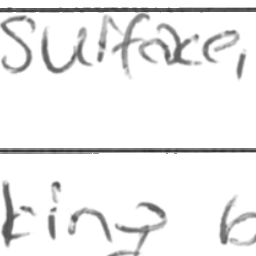 surface,
king